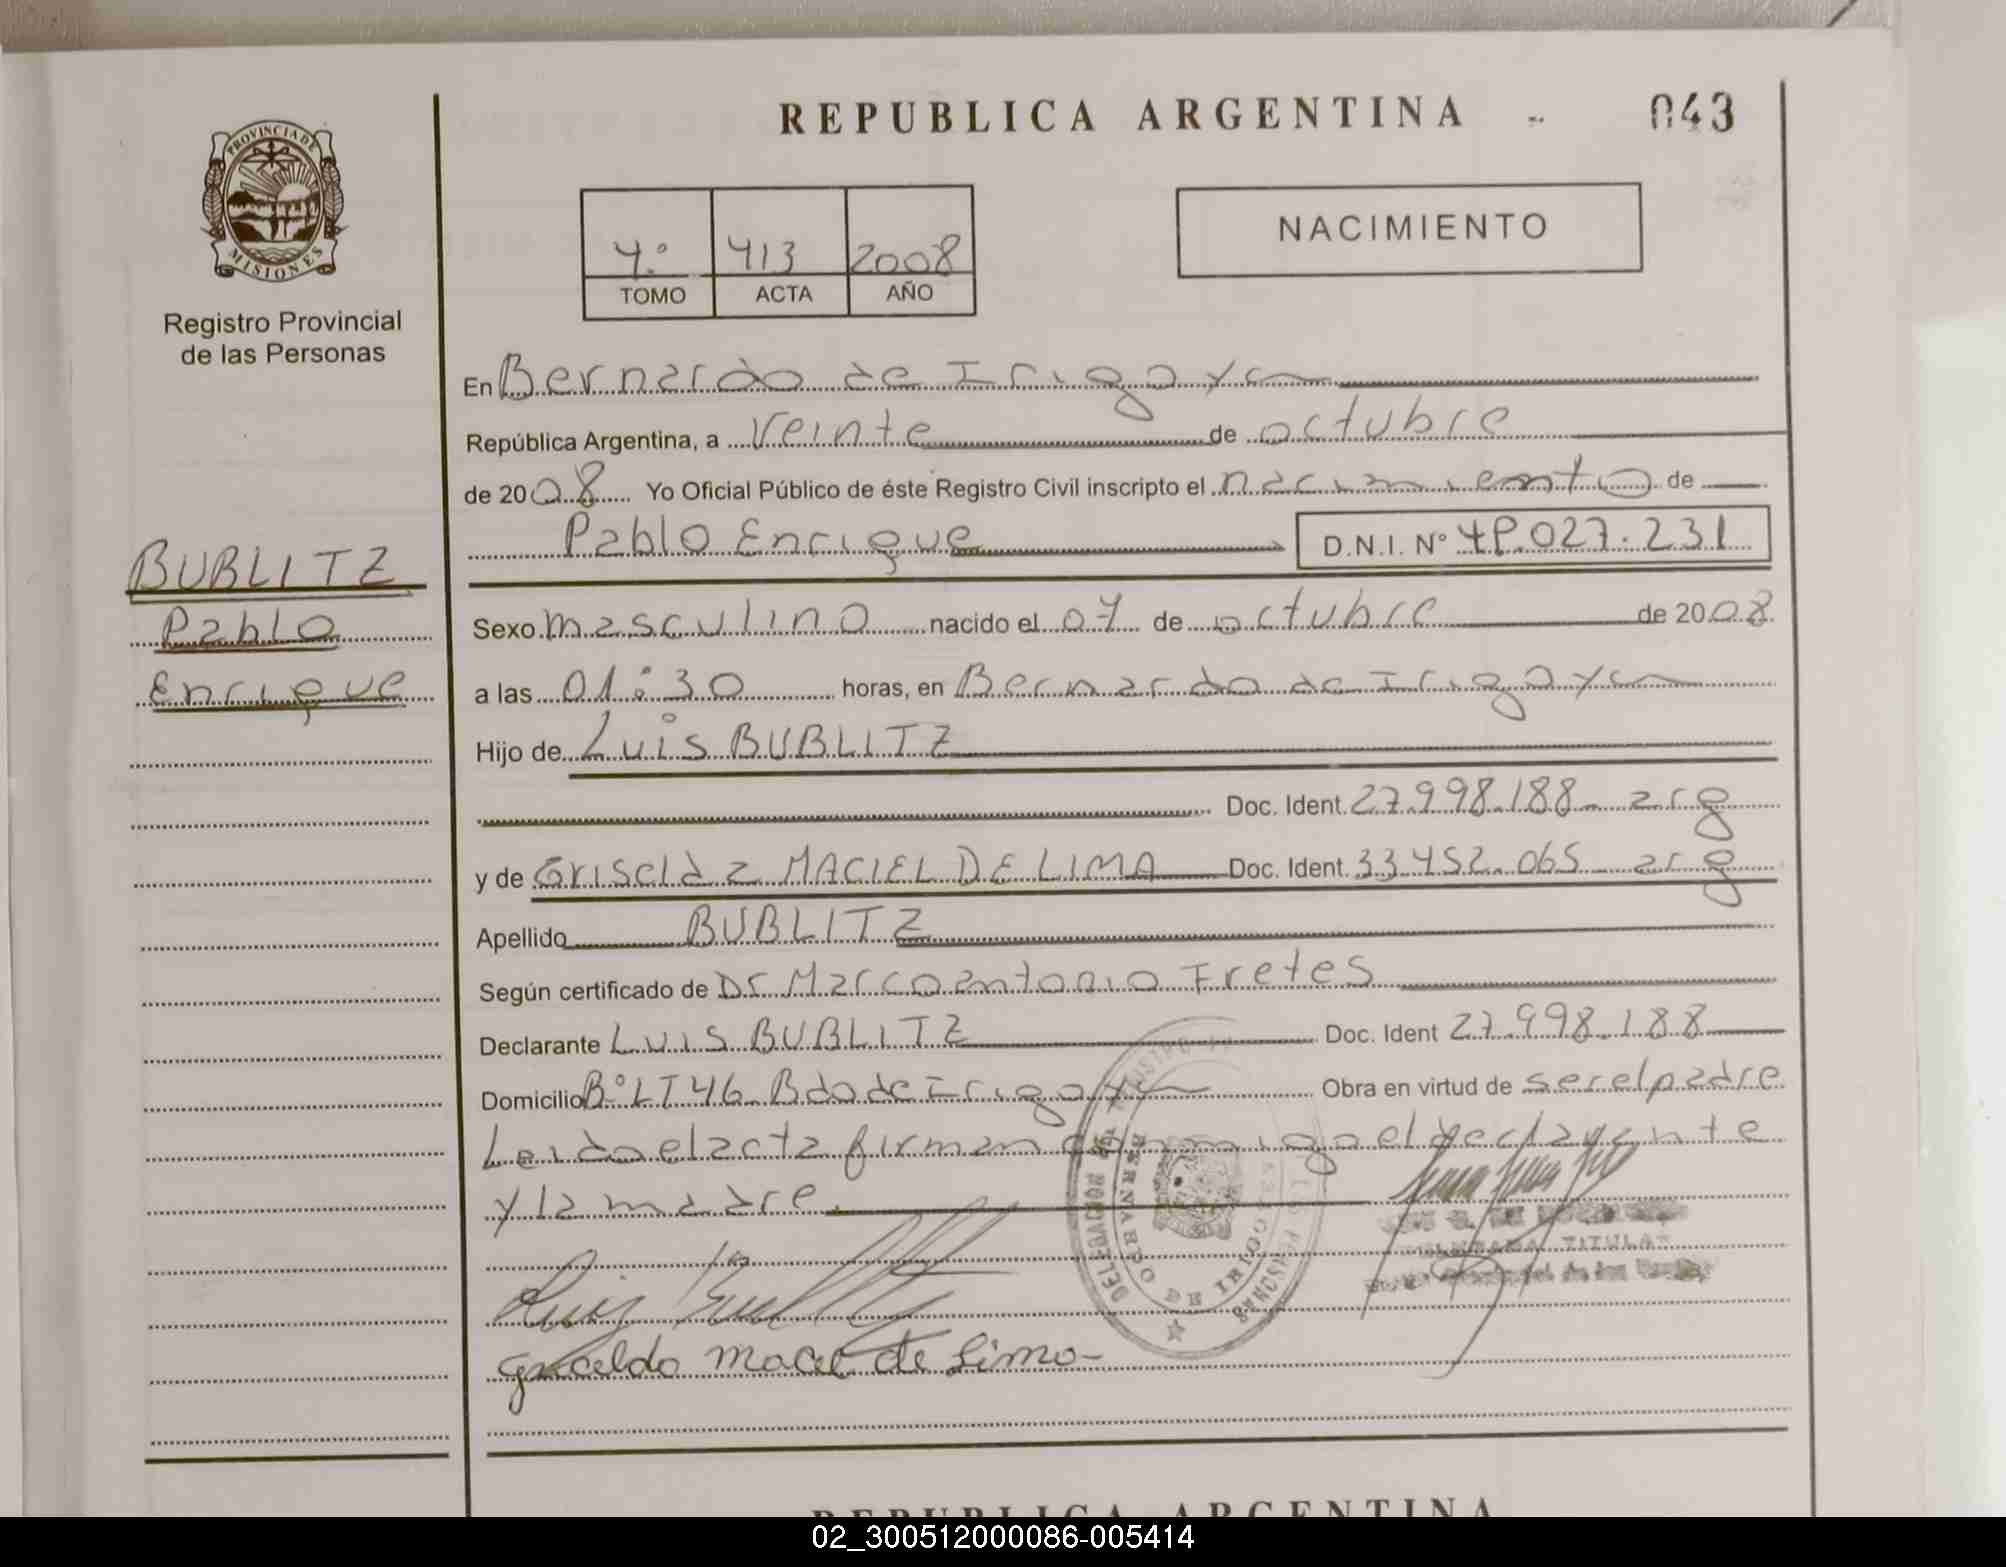 REPUBLICA ARGENTINA
043
PROVINCIA DE
MISIONES
Registro Provincial
de las Personas
4º 413 2008
TOMO ACTA AÑO
NACIMIENTO
En Bernardo de Irigoyen
República Argentina, a veinte de octubre
de 2008 Yo Oficial Público de éste Registro Civil inscripto el nacimiento de
Pablo Enrique D.N.I. Nº 49.027.231
BUBLITZ
Pablo
Enrique
Sexo masculino nacido el 04 de octubre de 2008
a las 01:30 horas, en Bernardo de Irigoyen
Hijo de Luis BUBLITZ
Doc. Ident. 27.998.188- arg
y de Griselda MACIEL DE LIMA Doc. Ident. 33.452.065 arg
Apellido BUBLITZ
Según certificado de Dr Marco antonio Fretes
Declarante LUIS BUBLITZ Doc. Ident 27.998.188
Domicilio Bº LT 46 Bdo de Irigoyen Obra en virtud de ser el padre
Leida el acta firman conmigo el declarante
y la madre.
DELEGACION
BERNARDO DE IRIGOYEN
PERSONAS
TITULAR
Luis Bublitz
Griselda Maciel de Lima
REPUBLICA ARGENTINA
02_300512000086-005414